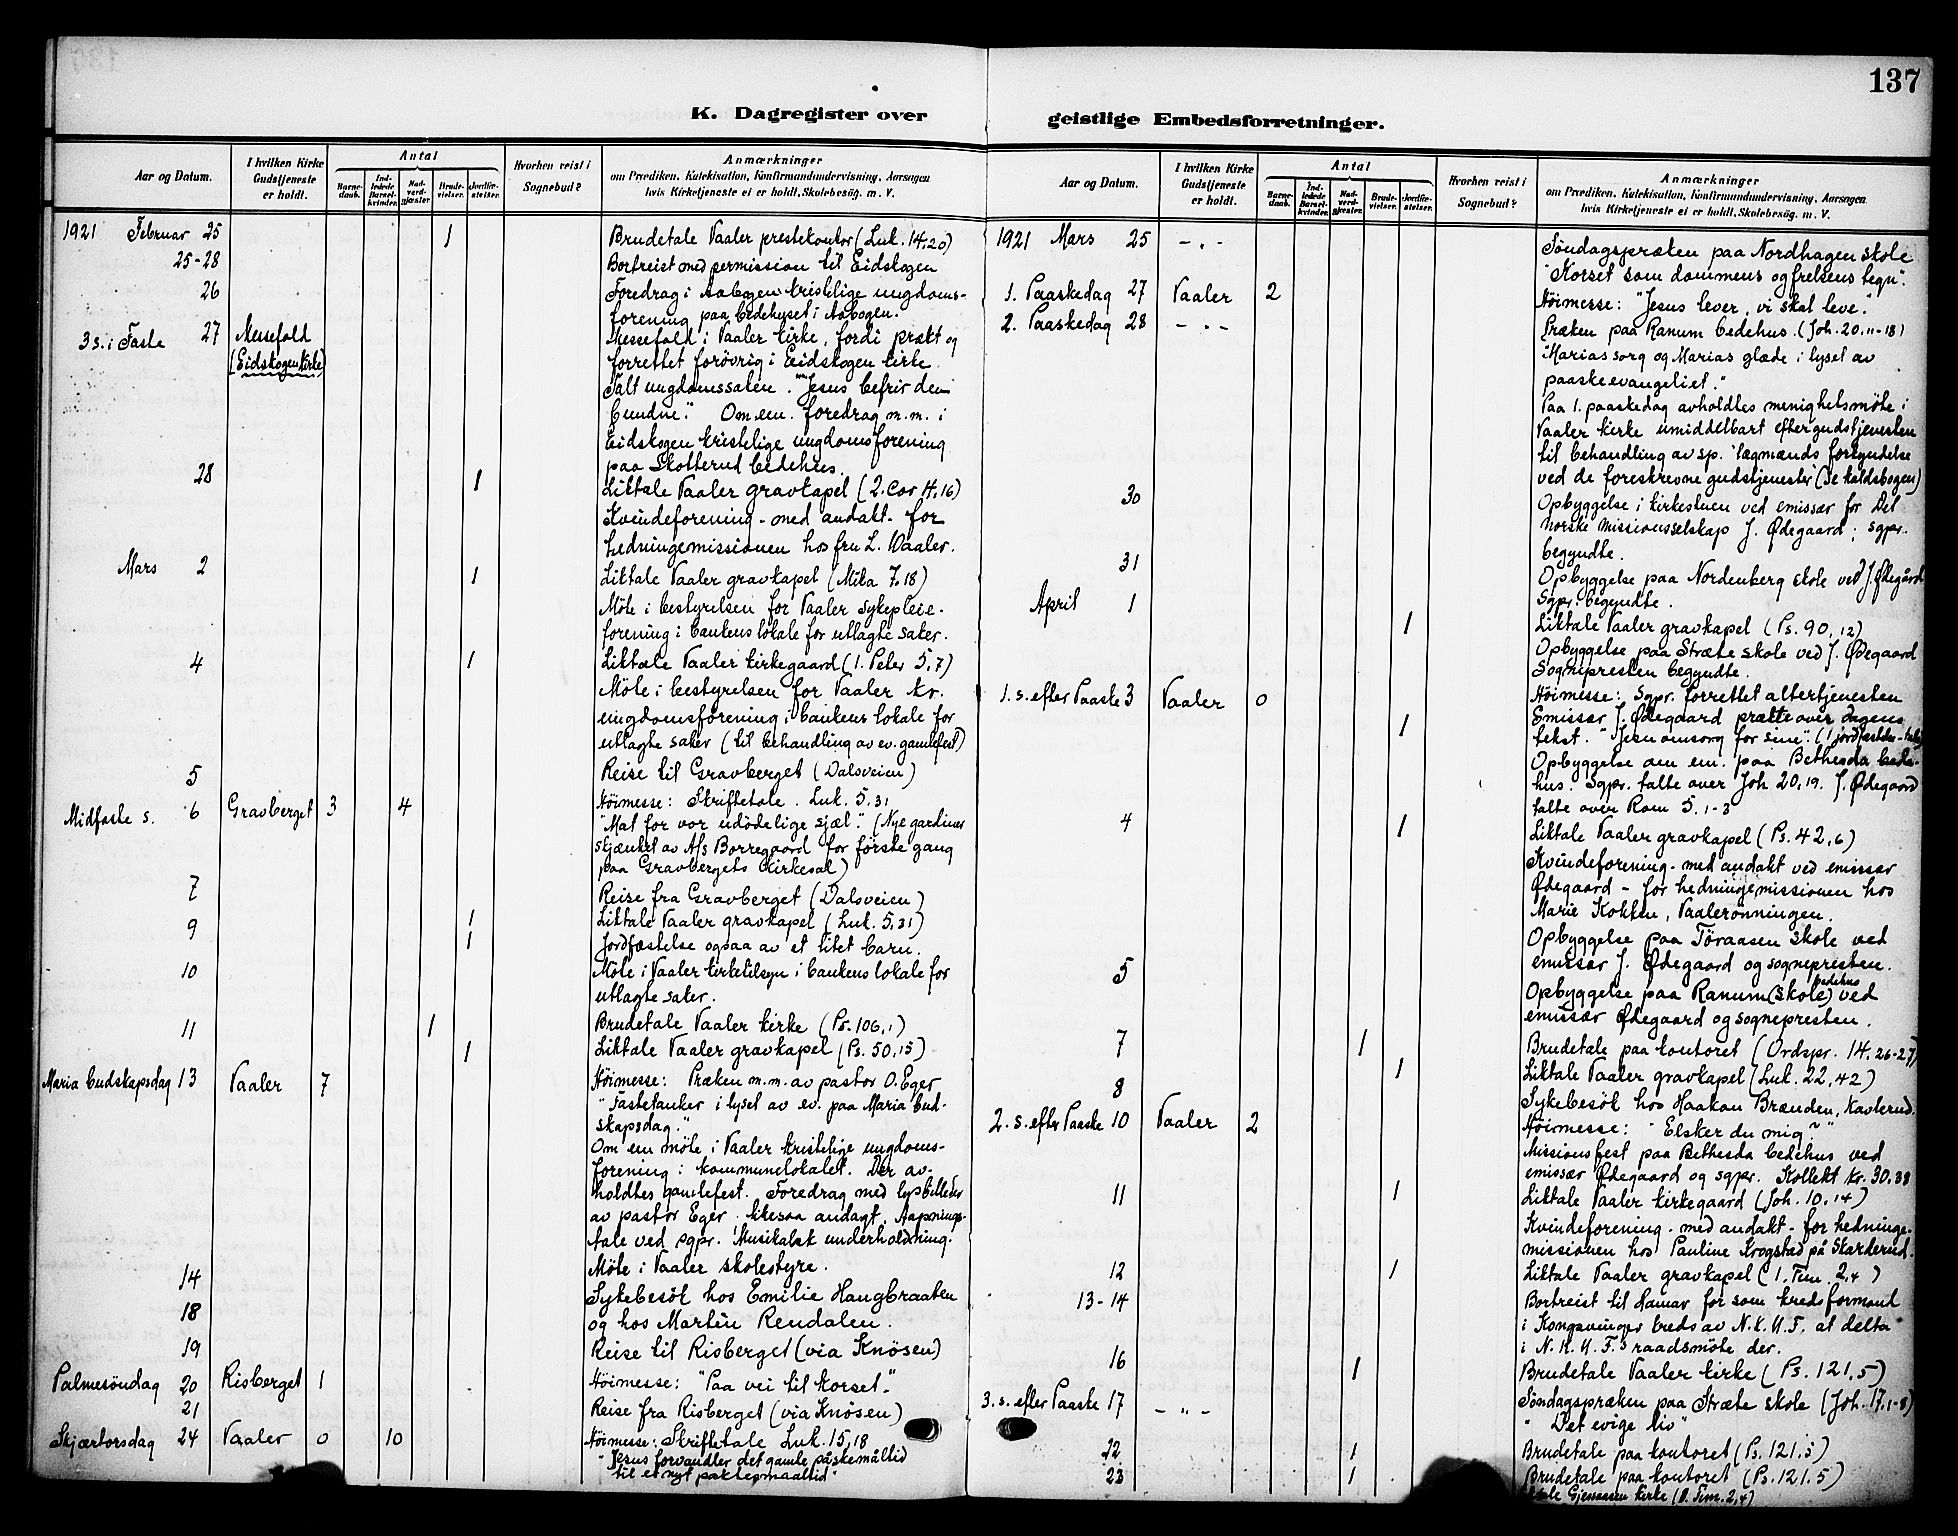 137
K. Dagregister over geistlige Embedsforretninger.
Aar og Datum.
I hvilken Kirke Gudstjeneste er holdt.
Antal
Barnedaab.
Indledede Barselkvinder.
Nadverdgjæster.
Brudevielser.
Jordfæstelser.
Hvorhen reist i Sognebud?
Anmærkninger
om Prædiken, Katekisation, Konfirmandundervisning, Aarsagen
hvis Kirketjeneste ei er holdt, Skolebesøg m. V.
1921 Februar 25 1 Brudetale Vaaler prestekontor (Luk. 14,20)
25-28 Bortreist med permission til Eidskogen
26 Foredrag i Aabogen kristelige ungdoms-
forening paa bedehuset i Aabogen.
3 s. i Faste 27 Messefald Messefald i Vaaler kirke, fordi prækt og
(Eidskogen kirke) forrettet forøvrig i Eidskogen kirke.
Talt ungdomssaken. "Jesus befrir de
bundne". Om em. foredrag m.m. i
Eidskogen kristelige ungdomsforening
paa Skotterud bedehus.
28 1 Liktale Vaaler gravkapel (2. Cor 4,16)
Kvindeforening - med andakt - for
hedningemissionen hos fru L. Vaaler.
Mars 2 1 Liktale Vaaler gravkapel (Mika 7,18)
Møte i bestyrelsen for Vaaler sykepleie-
forening i bankens lokale for utlagte saker.
4 1 Liktale Vaaler kirkegaard (1. Peter 5,7)
Møte i bestyrelsen for Vaaler kr.
ungdomsforening i bankens lokale for
utlagte saker (til behandling av ev. gamlefest)
5 Reise til Gravberget (Dalsveien)
Midfaste s. 6 Gravberget 3 4 Høimesse: Skriftetale. Luk. 5,31
"Mat for vor udødelige sjæl." (Nye gardiner
skjænket av A/s Borregaard for første gang
paa Gravbergets kirkesal)
7 Reise fra Gravberget (Dalsveien)
9 1 Liktale Vaaler gravkapel (Luk. 5,31)
1 Jordfæstelse ogsaa av et litet barn.
10 Møte i Vaaler kirketilsyn i bankens lokale for
utlagte saker.
11 1 Brudetale Vaaler kirke (Ps. 106,1)
1 Liktale Vaaler gravkapel (Ps. 50,15)
Maria budskapsdag 13 Vaaler 7 Høimesse: Præken m.m. av pastor O. Eger
"Fastetanker i lyset av ev. paa Maria bud-
skapsdag."
Om em møte i Vaaler kristelige ungdoms-
forening i kommunelokalet. Der av-
holdtes gamlefest. Foredrag med lysbilleder
av pastor Eger, likesaa andagt. Aapnings-
tale ved sgpr. Musikalsk underholdning.
14 Møte i Vaaler skolestyre.
18 Sykebesøk hos Emilie Haugbraaten
og hos Martin Rendalen.
19 Reise til Risberget (via Knösen)
Palmesöndag 20 Risberget 1 Høimesse: "Paa vei til korset."
21 Reise fra Risberget (via Knösen)
Skjærtorsdag 24 Vaaler 0 10 Høimesse: Skriftetale Luk. 15,18
"Jesus forvandler det gamle påskemåltid
til et nyt paktepmaaltid"
Aar og Datum.
I hvilken Kirke Gudstjeneste er holdt.
Antal
Barnedaab.
Indledede Barselkvinder.
Nadverdgjæster.
Brudevielser.
Jordfæstelser.
Hvorhen reist i Sognebud?
Anmærkninger
om Prædiken, Katekisation, Konfirmandundervisning, Aarsagen
hvis Kirketjeneste ei er holdt, Skolebesøg m. V.
1921 Mars 25 - " - Søndagspræken paa Nordhagen skole
"Korset som dommens og frelsens tegn".
1. Paaskedag 27 Vaaler 2 Høimesse: "Jesus lever, vi skal leve".
2. Paaskedag 28 - " - Præken paa Ranum bedehus. (Joh. 20,11-18)
"Marias sorg og Marias glæde i lyset av
paaskeevangeliet."
Paa 1. paaskedag avholdtes menighetsmøte i
Vaaler kirke umiddelbart efter gudstjenesten
til behandling av sp. "lægmænds forkyndelse
ved de foreskrevne gudstjenester" (Se kaldsbogen)
30 Opbyggelse i kirkestuen ved emissær for Det
norske missionsselskap J. Ødegaard; sgpr.
begyndte.
31 Opbyggelse paa Nordenberg skole ved J. Ødegård
Sgpr. begyndte.
April 1 1 Liktale Vaaler gravkapel (Ps. 90,12)
Opbyggelse paa Stræte skole ved J. Ødegaard
Sognepresten begyndte.
1. s. efter Paaske 3 Vaaler 0 Høimesse: Sgpr. forrettet altertjenesten
1 Emissær J. Ødegaard prækte over dagens
tekst. "Jesu omsorg for sine".
Opbyggelse om em. paa Bethesda bede-
hus. Sgpr. talte over Joh 20,19. J. Ødegaard
talte over Rom 5,1-3
4 1 Liktale Vaaler gravkapel (Ps. 42,6)
Kvindeforening - med andakt ved emissær
Ødegaard - for hedningemissionen hos
Marie Kokken, Vaalerønningen.
Opbyggelse paa Tøraasen skole ved
emissær J. Ødegaard og sognepresten.
5 Opbyggelse paa Ranum (skole) bedehus ved
emissær Ødegaard og sognepresten.
7 1 Brudetale paa kontoret (Ordspr. 14,26-27)
1 Liktale Vaaler gravkapel (Luk. 22,42)
8 Sykebesøk hos Haakon Brænden, Kavlerud.
2. s. efter Paaske 10 Vaaler 2 Høimesse: "Elsker du mig?"
Missionsfest paa Bethesda bedehus ved
emissær Ødegaard og sgpr. Kollekt kr. 30,38
11 1 Liktale Vaaler kirkegaard (Joh. 10,14)
Kvindeforening - med andakt - for hedninge-
missionen hos Pauline Krogstad på Skarderud.
12 1 Liktale Vaaler gravkapel (1. Tim. 2,4)
13-14 Bortreist til Hamar for som kredsformand
i Kongsvinger kreds av N.K.U.F. at delta
i N.K.U.F.s raadsmøte der.
16 1 Brudetale Vaaler kirke (Ps. 121,5)
3. s. efter Paaske 17 - " - Søndagspræken paa Stræte skole (Joh. 17,1-8)
"Det evige liv"
22 1 Brudetale paa kontoret (Ps. 121,5)
23 1 Brudetale paa kontoret (Ps. 121,5)
Gjesaasen kirke (1. Tim. 2,4)